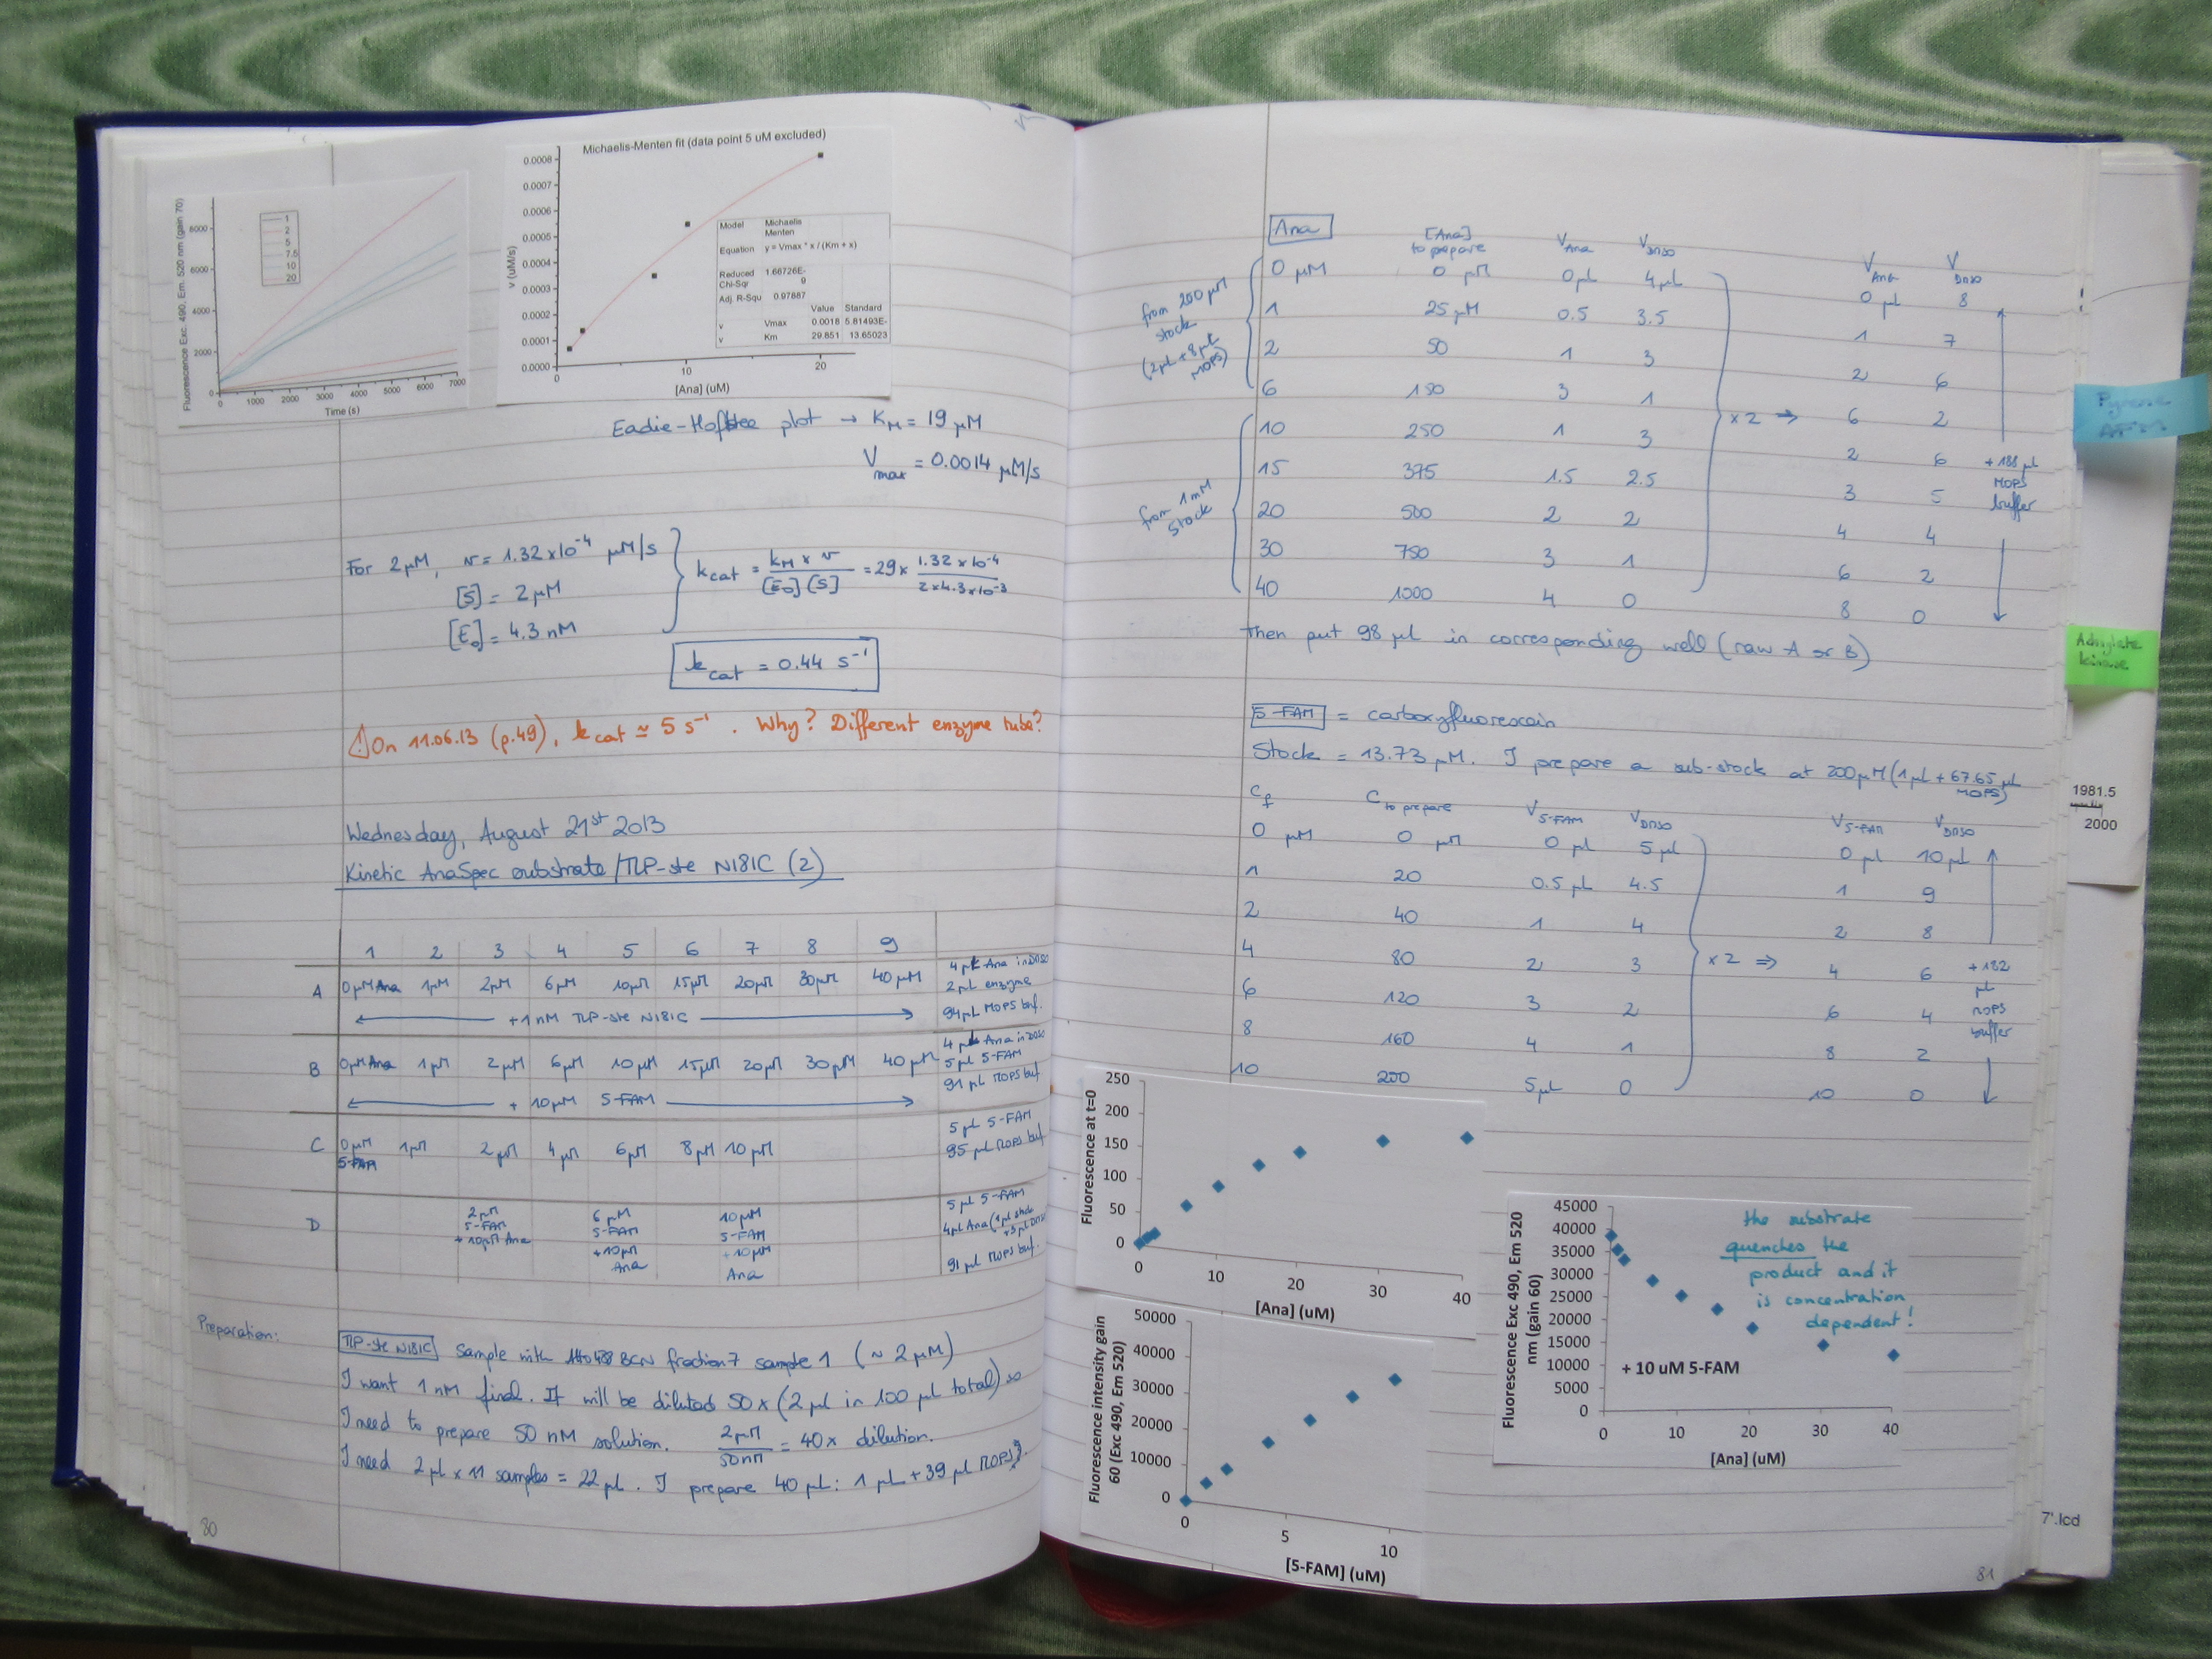 Fluorescence Exc. 490, Em. 520 nm (gain 70)
8000
6000
4000
2000
0
1
2
5
7.5
10
20
0 1000 2000 3000 4000 5000 6000 7000
Time (s)
Michaelis-Menten fit (data point 5 uM excluded)
v (uM/s)
0.0008
0.0007
0.0006
0.0005
0.0004
0.0003
0.0002
0.0001
0.0000
0 10 20
[Ana] (uM)
Model Michaelis Menten
Equation y = Vmax * x / (Km + x)
Reduced Chi-Sqr 1.66726E-9
Adj. R-Squ 0.97887
Value Standard
v Vmax 0.0018 5.81493E-
v Km 29.851 13.65023
Eadie-Hofstee plot → KM = 19 µM
Vmax = 0.0014 µM/s
For 2µM, v = 1.32 x10-4 µM/s
[S] = 2µM
[E0] = 4.3 nM
kcat = KM x v / [E0][S] = 29 x 1.32 x 10-4 / 2 x 4.3 x 10-3
kcat = 0.44 s-1
⚠ On 11.06.13 (p.49), kcat ≃ 5 s-1. Why? Different enzyme tube?
Wednesday, August 21st 2013
Kinetic AnaSpec substrate / TLP-ste N181C (2)
1 2 3 4 5 6 7 8 9
A 0µM Ana 1µM 2µM 6µM 10µM 15µM 20µM 30µM 40µM
+ 1 nM TLP-ste N181C
4µL Ana in DMSO
2µL enzyme
94µL MOPS buf.
B 0µM Ana 1µM 2µM 6µM 10µM 15µM 20µM 30µM 40µM
+ 10µM 5-FAM
4µL Ana in DMSO
5µL 5-FAM
91µL MOPS buf.
C 0µM 5-FAM 1µM 2µM 4µM 6µM 8µM 10µM
5µL 5-FAM
95µL MOPS buf.
D 2µM 5-FAM + 10µM Ana
6µM 5-FAM + 10µM Ana
10µM 5-FAM + 10µM Ana
5µL 5-FAM
4µL Ana (1µL stock + 3µL DMSO
91µL MOPS buf.
Preparation:
TLP-ste N181C sample with Atto488 BCN fraction 7 sample 1 (~ 2µM)
I want 1 nM final. It will be diluted 50x (2µL in 100µL total) so
I need to prepare 50 nM solution. 2µM / 50nM = 40x dilution.
I need 2µL x 11 samples = 22µL. I prepare 40µL: 1µL + 39µL MOPS.
80
Ana [Ana] to prepare VAna VDMSO VAna VDMSO
from 200µM stock (2µL + 8µL MOPS)
0 µM 0 µM 0µL 4µL 0 µL 8
1 25µM 0.5 3.5 1 7
2 50 1 3 2 6
6 150 3 1 6 2
from 1mM stock
10 250 1 3 2 6
15 375 1.5 2.5 3 5
20 500 2 2 4 4
30 750 3 1 6 2
40 1000 4 0 8 0
x 2 ⇒
+ 188µL MOPS buffer
then put 98µL in corresponding well (raw A or B)
5-FAM = carboxyfluorescein
Stock = 13.73µM. I prepare a sub-stock at 200µM (1µL + 67.65µL MOPS)
Cf Cto prepare V5-FAM VDMSO V5-FAM VDMSO
0 µM 0 µM 0 µL 5µL 0 µL 10µL
1 20 0.5µL 4.5 1 9
2 40 1 4 2 8
4 80 2 3 4 6
6 120 3 2 6 4
8 160 4 1 8 2
10 200 5µL 0 10 0
x 2 ⇒
+ 182 µL MOPS buffer
Fluorescence at t=0
250
200
150
100
50
0
0 10 20 30 40
[Ana] (uM)
Fluorescence intensity gain 60 (Exc 490, Em 520)
50000
40000
30000
20000
10000
0
0 5 10
[5-FAM] (uM)
Fluorescence Exc 490, Em 520 nm (gain 60)
45000
40000
35000
30000
25000
20000
15000
10000
5000
0
0 10 20 30 40
[Ana] (uM)
+ 10 uM 5-FAM
the substrate
quenches the
product and it
is concentration
dependent!
81
Pyrene
Adenylate
kinase
1981.5
2000
7'.lcd